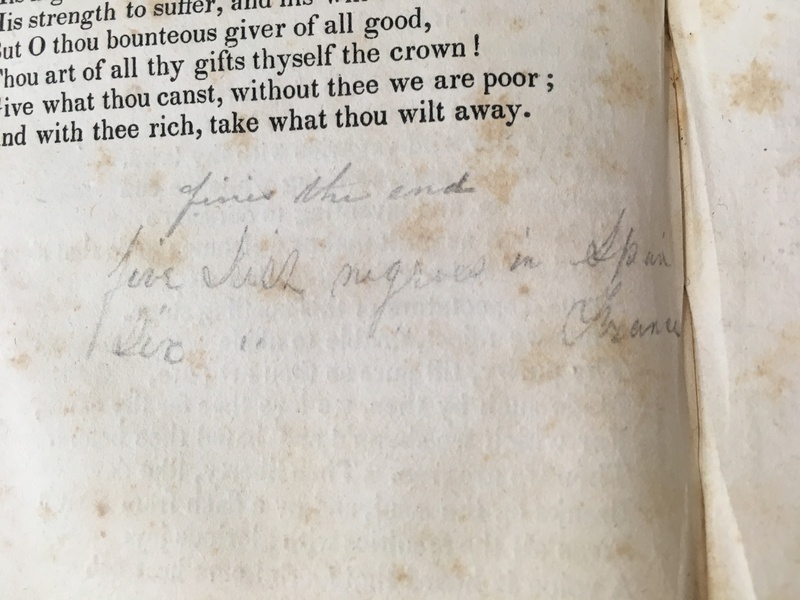 His strength to suffer, and his
But O thou bounteous giver of all good,
Thou art of all thy gifts thyself the crown !
Give what thou canst, without thee we are poor ;
And with thee rich, take what thou wilt away.
finis the end
five negroes in Spain
Six " " France